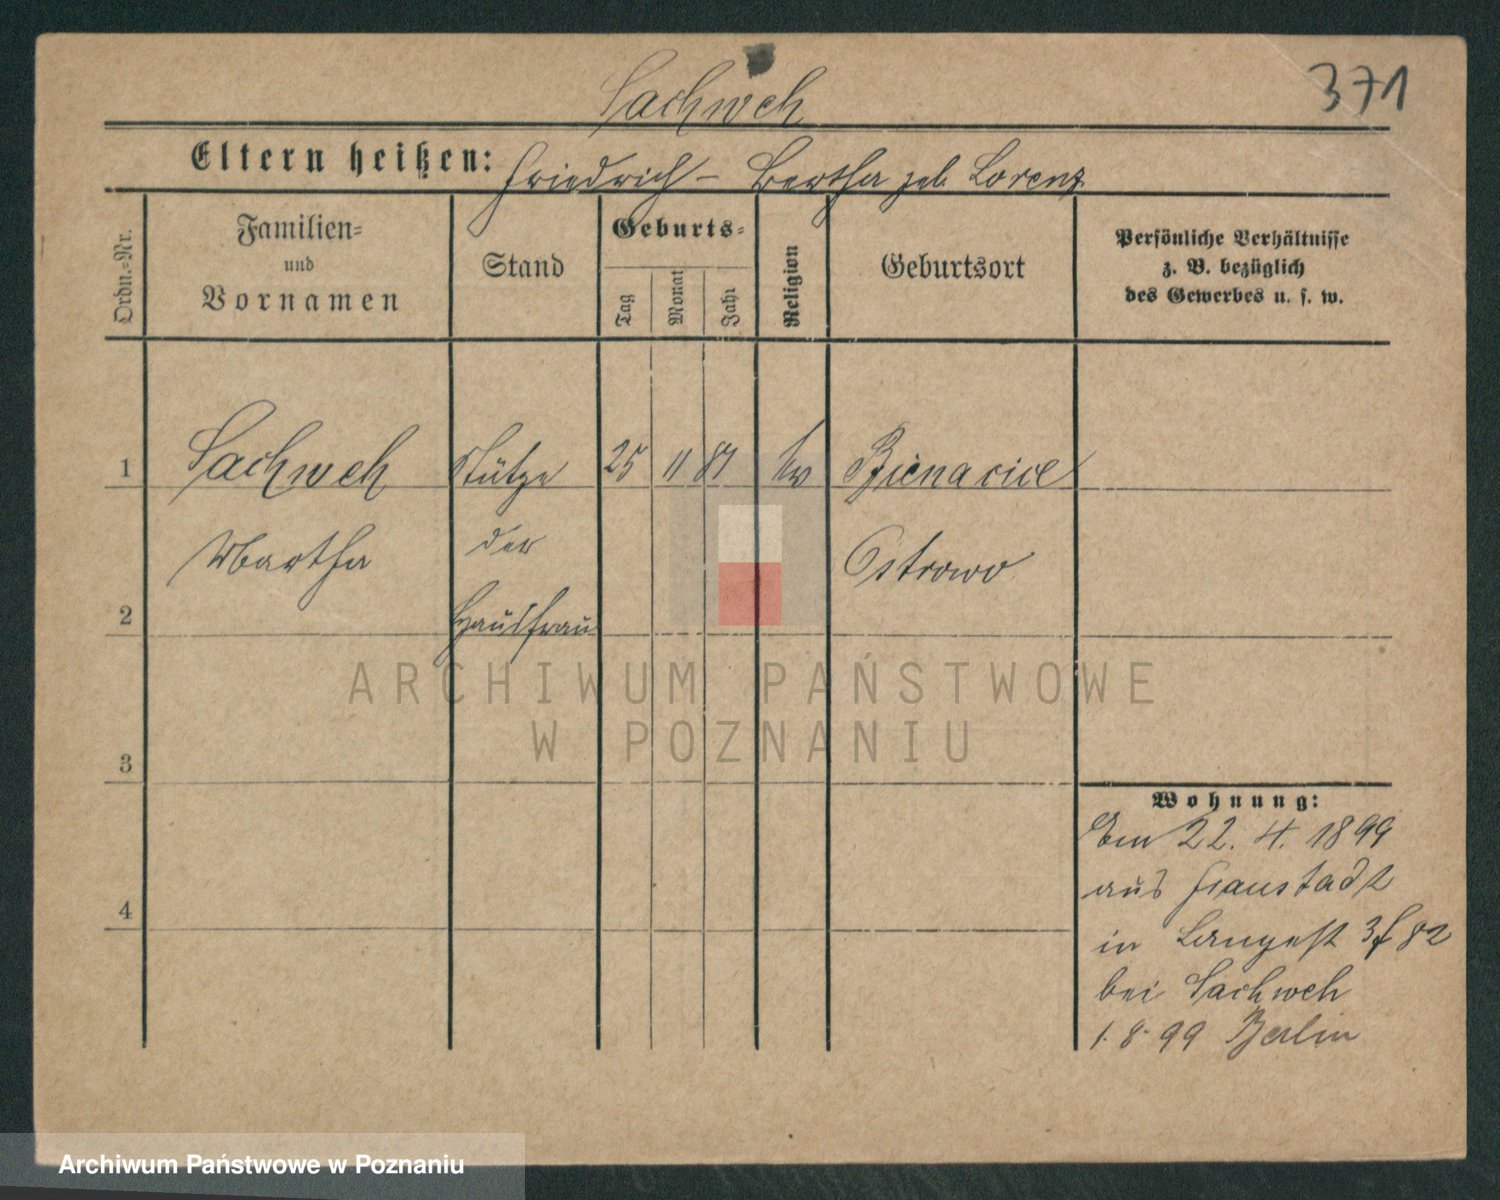 Sachweh
371
Eltern heißen: Friedrich – Bertha geb. Lorenz
Ordn.-Nr.
Familien-
und
Vornamen
Stand
Geburts-
Tag
Monat
Jahr
Religion
Geburtsort
Persönliche Verhältnisse
z. B. bezüglich
des Gewerbes u. s. w.
1
Sachweh
Stütze
25
11
81
ev
Bienacice
Martha
der
Ostrowo
2
Hausfrau
ARCHIWUM PAŃSTWOWE
W POZNANIU
3
4
Wohnung:
Am 22. 4. 1899
aus Fraustadt
in Langest
bei Sachweh
1. 8. 99 Berlin
Archiwum Państwowe w Poznaniu